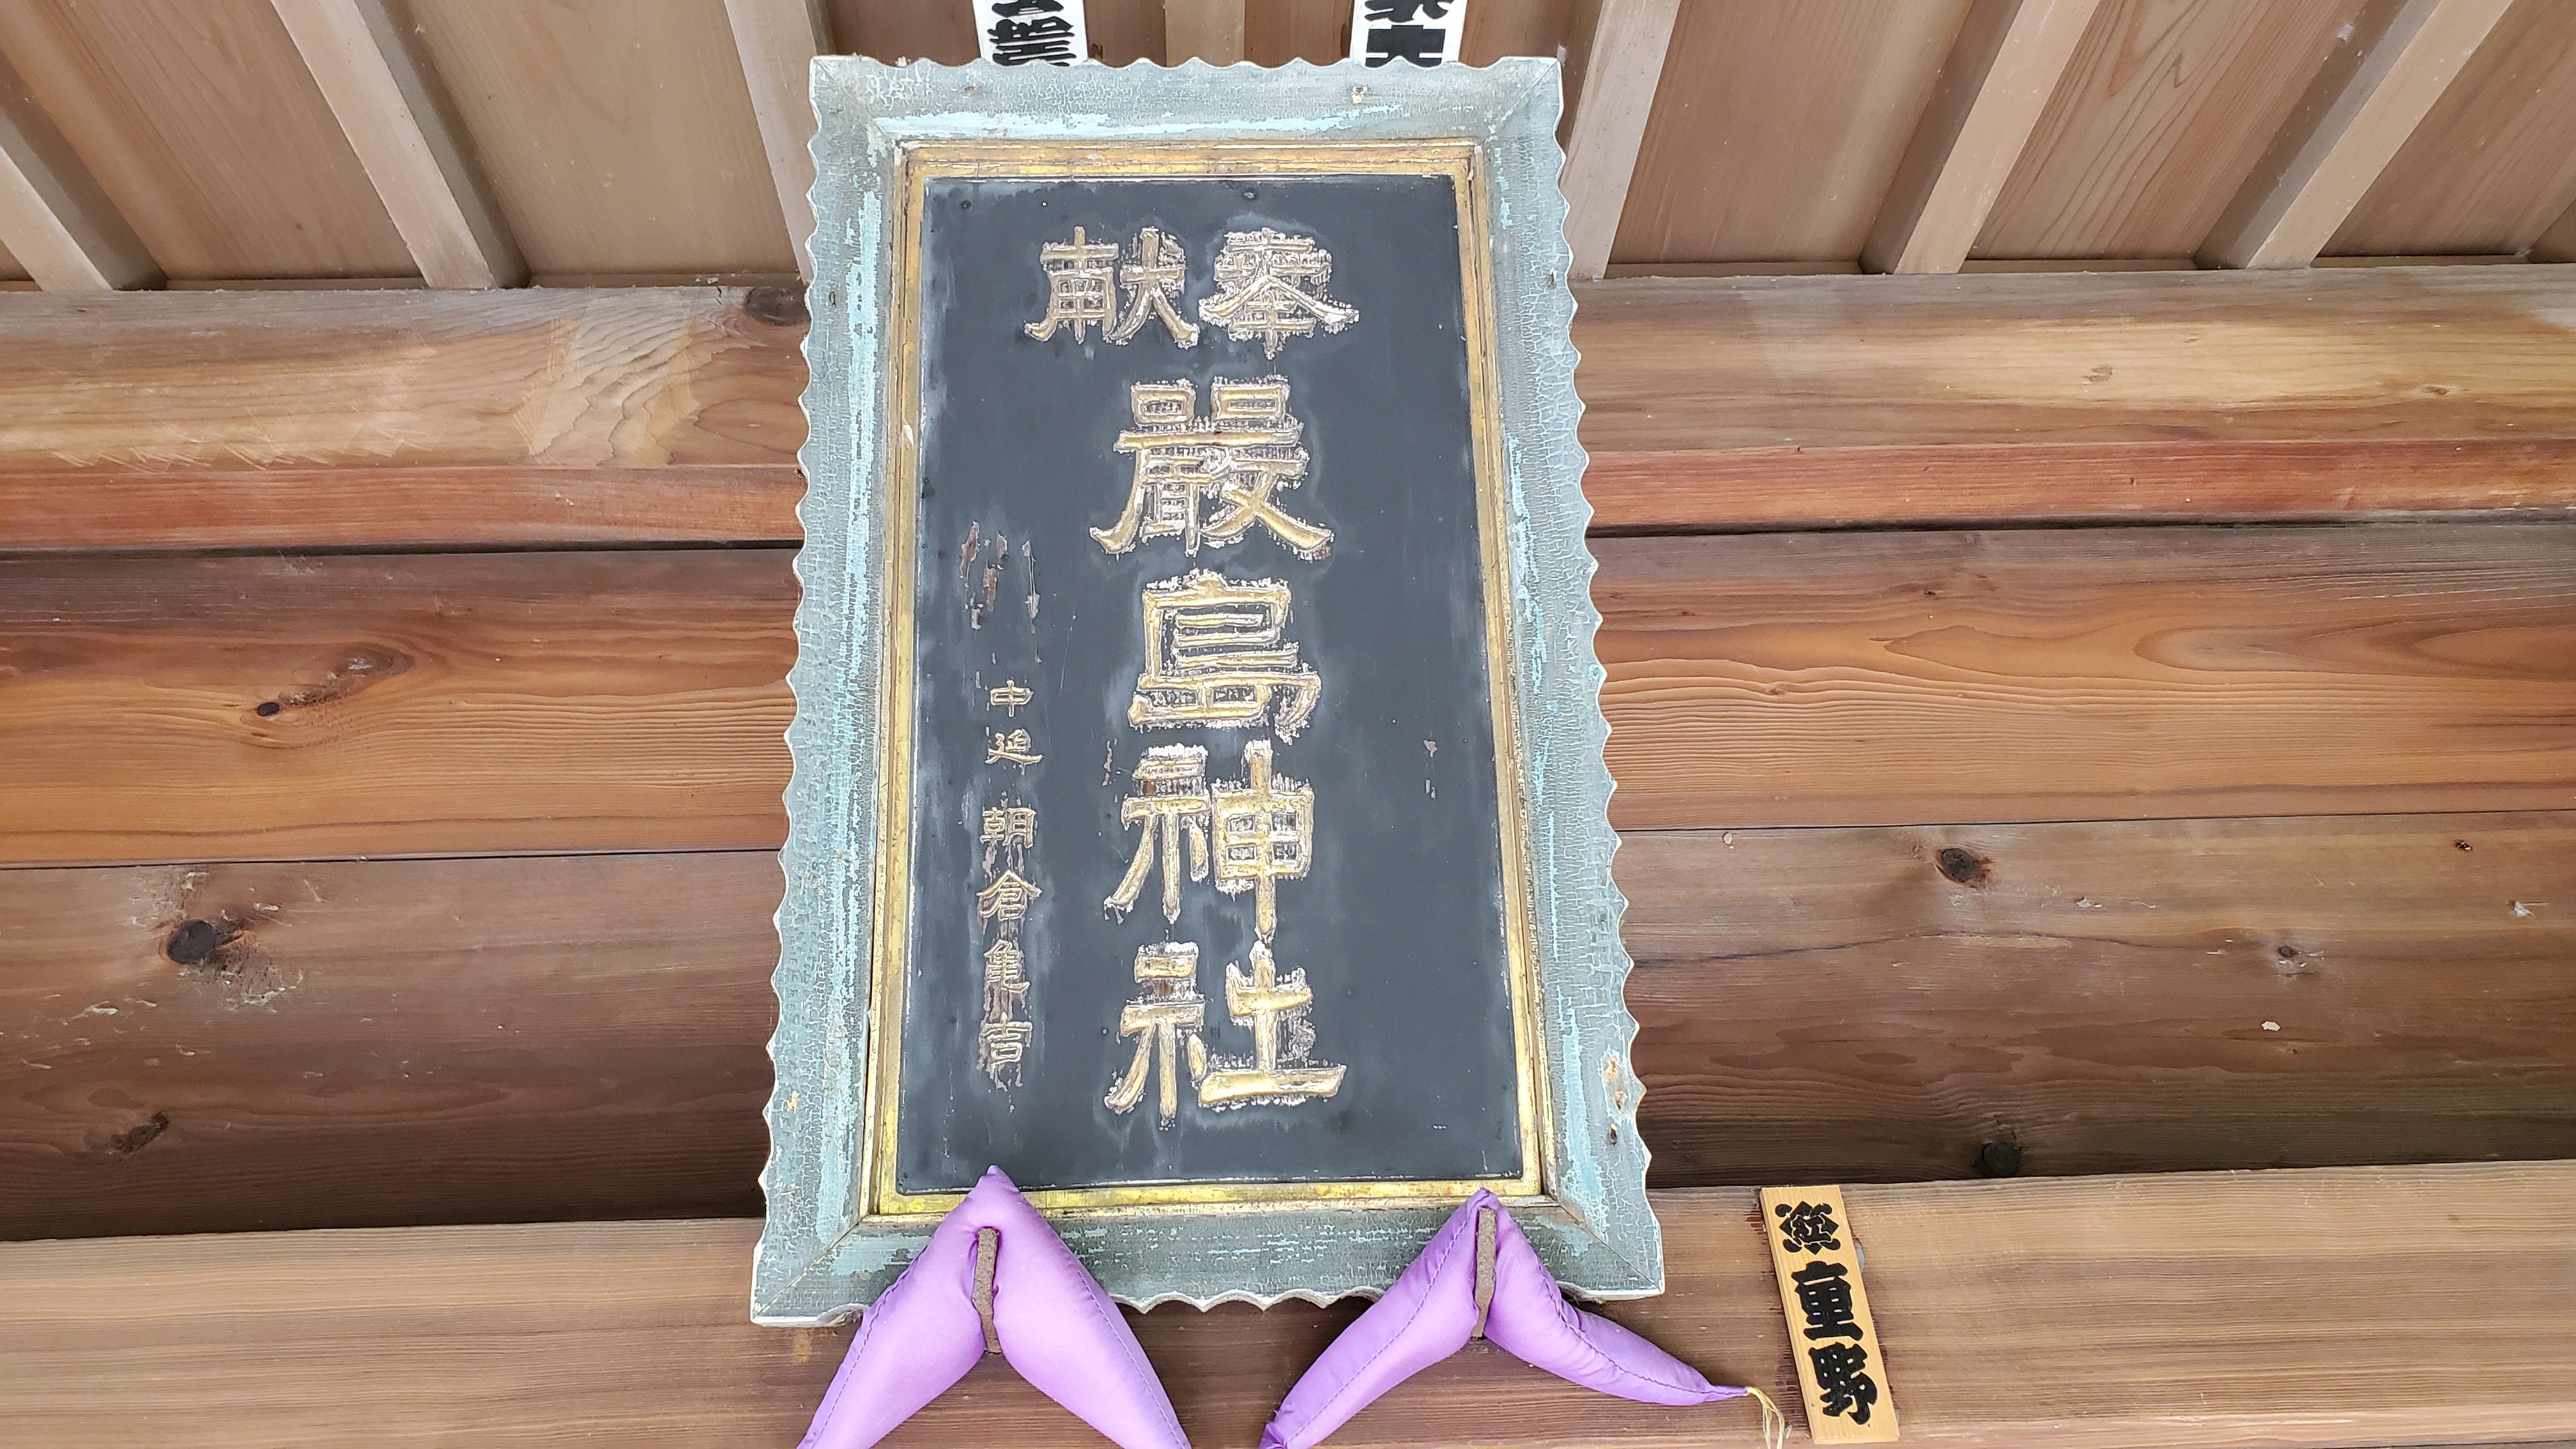 奉献
嚴島神社
中延 朝倉亀吉
重野